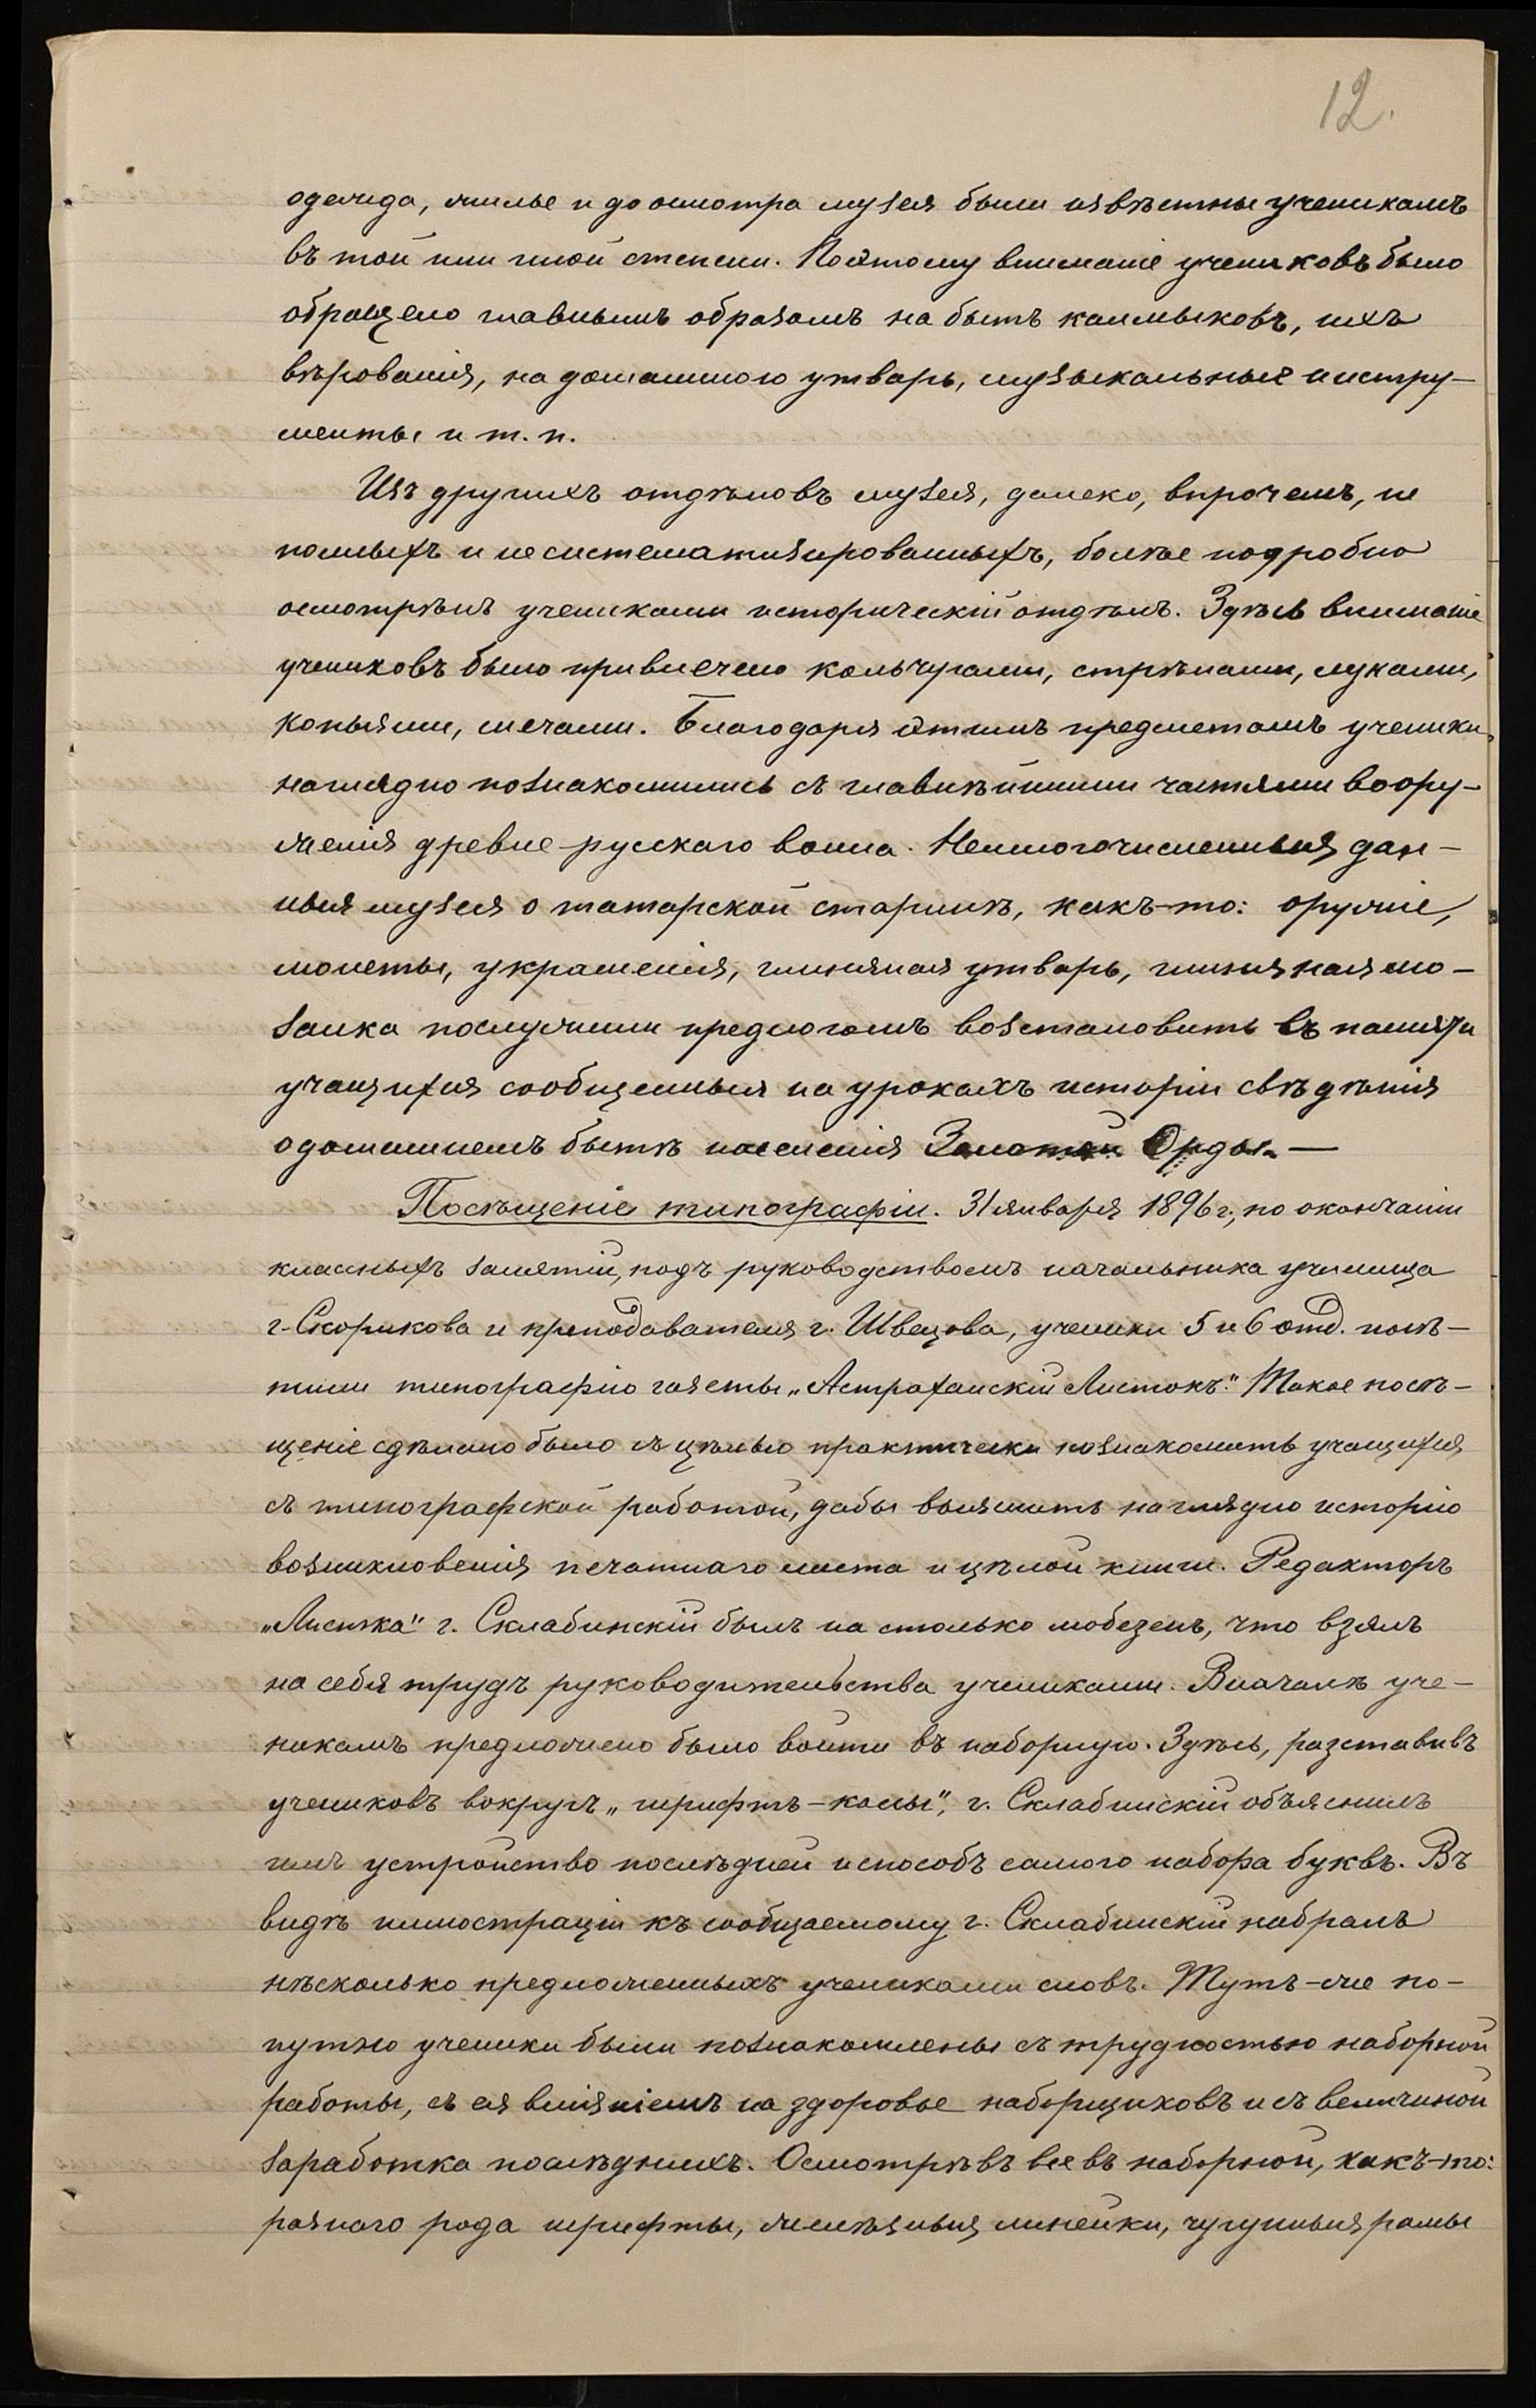 12.
одежда, жилье и до осмотра музея были извѣстны ученикамъ
въ той или иной степени. Поэтому вниманіе учениковъ было
обращено главнымъ образомъ на бытъ калмыковъ, ихъ
вѣрованія, на домашнюю утварь, музыкальные инстру-
менты и т. п.
Изъ другихъ отдѣловъ музея, далеко, впрочемъ, не
полныхъ и не систематизированныхъ, болѣе подробно
осмотрѣнъ учениками историческій отдѣлъ. Здѣсь вниманіе
учениковъ было привлечено кольчугами, стрѣлами, луками,
копьями, мечами. Благодаря этимъ предметамъ ученики
наглядно познакомились съ главнѣйшими частями воору-
женія древне-русскаго воина. Немногочисленныя дан-
ныя музея о татарской старинѣ, какъ-то: оружіе,
монеты, украшенія, глиняная утварь, глиняная мо-
заика послужили предлогомъ возстановить въ памяти
учащихся сообщенныя на урокахъ исторіи свѣдѣнія
о домашнемъ бытѣ населенія Золотой Орды. —
Посѣщеніе типографіи. 31 января 1896 г., по окончаніи
классныхъ занятій, подъ руководствомъ начальника училища
г. Скорикова и преподавателя г. Швецова, ученики 5 и 6 отд. посѣ-
тили типографію газеты „Астраханскій Листокъ." Такое посѣ-
щеніе сдѣлано было съ цѣлью практически познакомить учащихся
съ типографской работой, дабы выяснить наглядно исторію
возникновенія печатнаго листа и цѣлой книги. Редакторъ
„Листка" г. Склабинскій былъ на столько любезенъ, что взялъ
на себя трудъ руководительства учениками. Вначалѣ уче-
никамъ предложено было войти въ наборную. Здѣсь, разставивъ
учениковъ вокругъ „шрифтъ-кассы", г. Склабинскій объяснилъ
имъ устройство послѣдней и способъ самого набора буквъ. Въ
видѣ иллюстраціи къ сообщаемому г. Склабинскій набралъ
нѣсколько предложенныхъ учениками словъ. Тутъ-же по-
путно ученики были познакомлены съ трудностью наборной
работы, съ ея вліяніемъ на здоровье наборщиковъ и съ величиной
заработка послѣднихъ. Осмотрѣвъ все въ наборной, какъ-то:
разнаго рода шрифты, желѣзныя линейки, чугунныя рамы